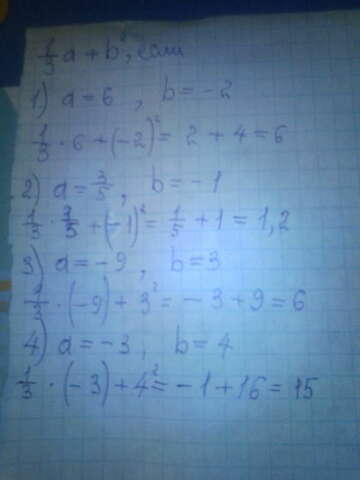 1/3 a + b², если
1) a = 6 , b = -2
1/3 · 6 + (-2)² = 2 + 4 = 6
2) a = 3/5 , b = -1
1/3 · 3/5 + (-1)² = 1/5 + 1 = 1,2
3) a = -9 , b = 3
1/3 · (-9) + 3² = -3 + 9 = 6
4) a = -3 , b = 4
1/3 · (-3) + 4² = -1 + 16 = 15